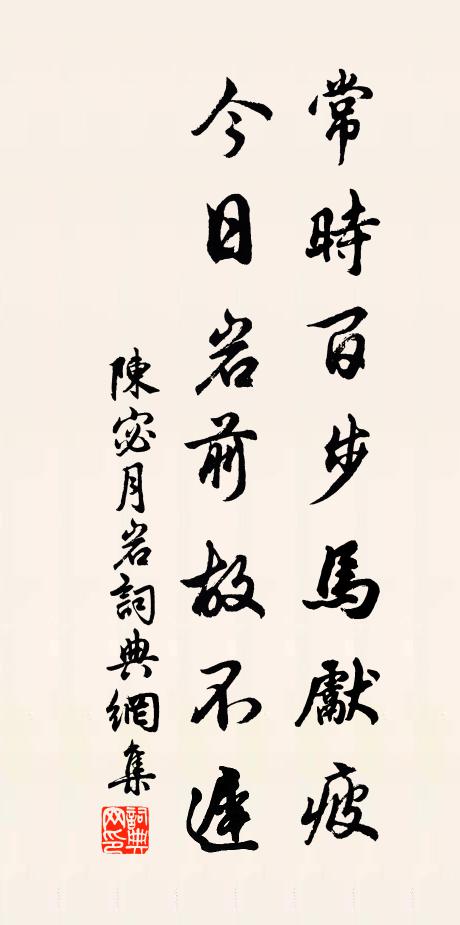 常時百步馬獻疲
今日岩前故不遲
陳宓月岩詞典網集
詞典網印